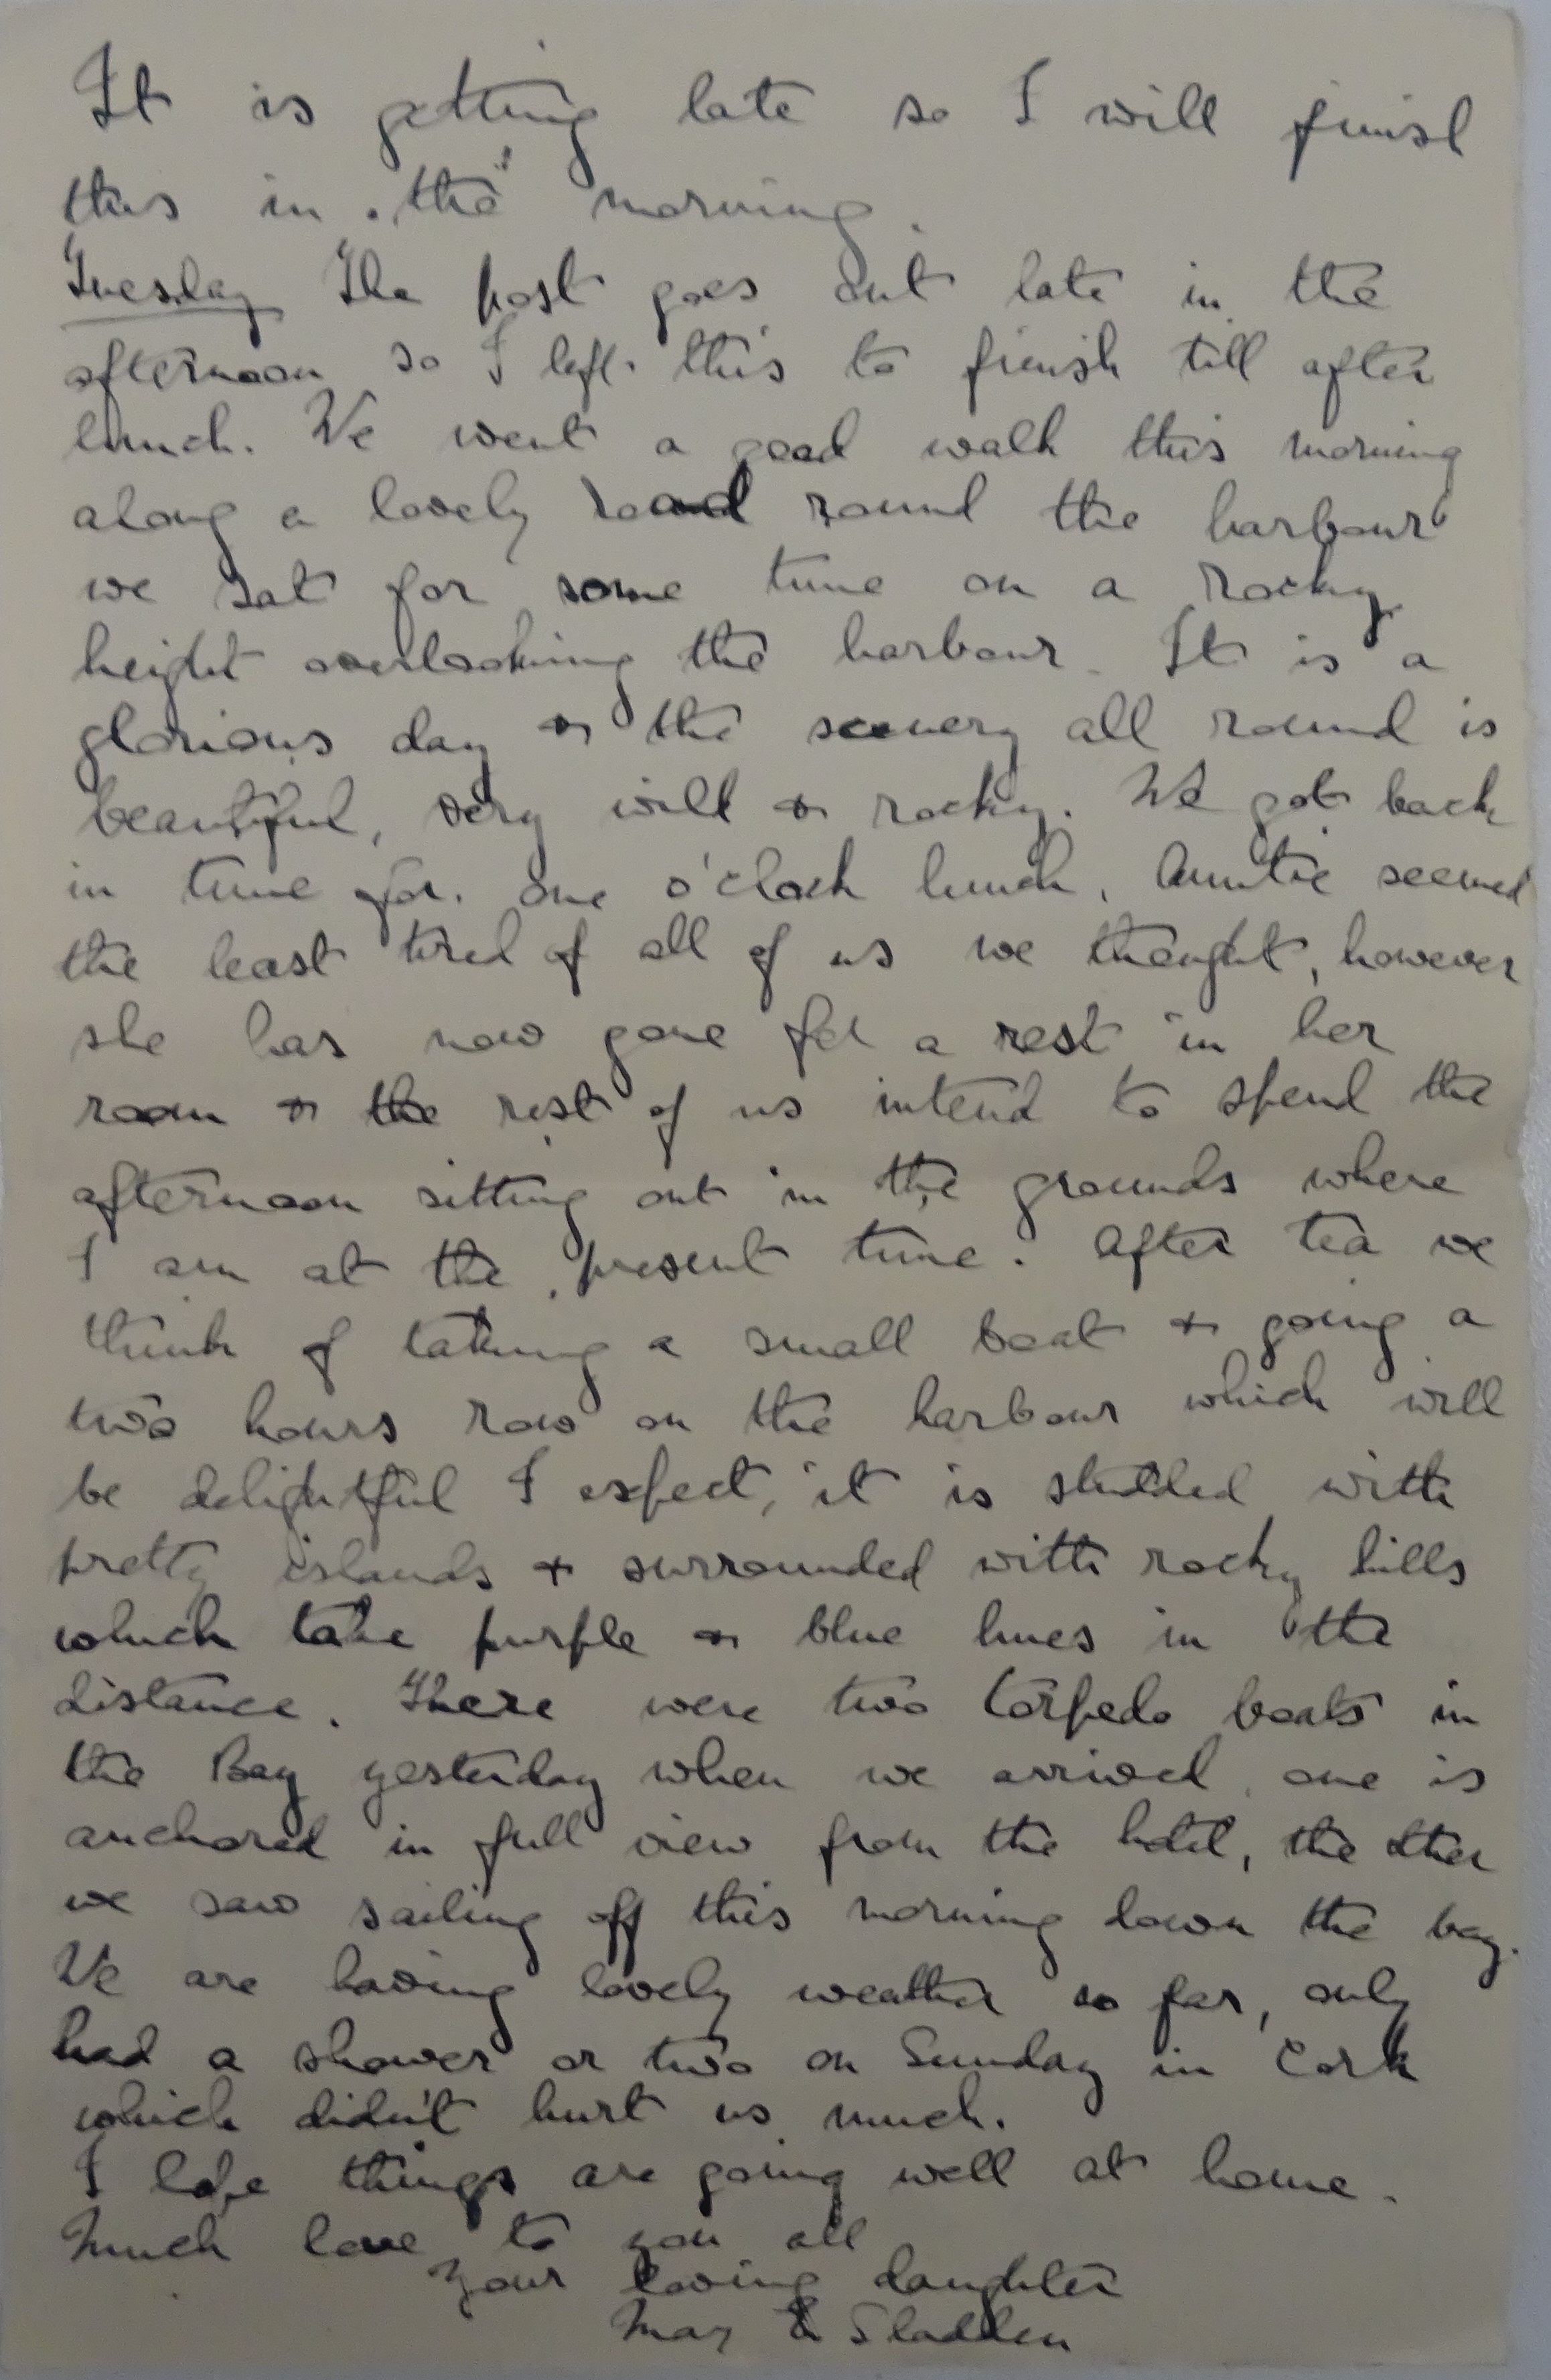 It is getting late so I will finish
this in the morning.
Tuesday The post goes out late in the
afternoon so I left this to finish till after
lunch. We went a good walk this morning
along a lovely road round the harbour
we sat for some time on a rocky
height overlooking the harbour. It is a
glorious day & the scenery all round is
beautiful, very wild & rocky. We got back
in time for one o'clock lunch. Auntie seemed
the least tired of all of us we thought, however
she has now gone for a rest in her
room & the rest of us intend to spend the
afternoon sitting out in the grounds where
I am at the present time. After tea we
think of taking a small boat & going a
two hours row on the harbour which will
be delightful I expect, it is studded with
pretty islands & surrounded with rocky hills
which take purple & blue hues in the
distance. There were two torpedo boats in
the Bay yesterday when we arrived, one is
anchored in full view from the hotel, the other
we saw sailing off this morning down the bay.
We are having lovely weather so far, only
had a shower or two on Sunday in Cork
which didn't hurt us much.
I hope things are going well at home.
Much love to you all
Your loving daughter
May E Sladden